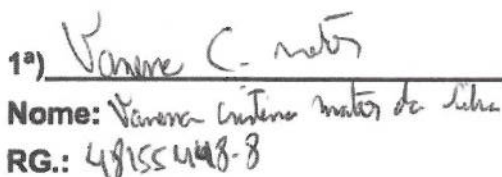 1ª) Vanessa C. Matos
Nome: Vanessa Cristina Matos da Silva
RG.: 48155448-8